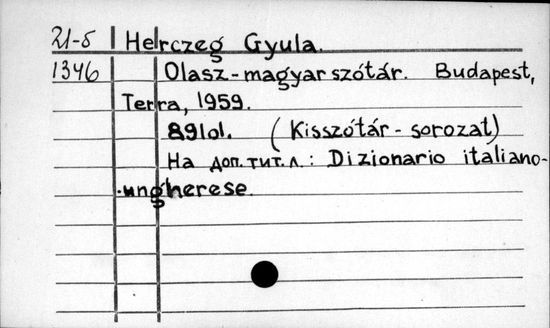 21-5 Herczeg Gyula.
1346 Olasz-magyar szótár. Budapest,
Terra, 1959.
891 ol. (Kisszótár-sorozat)
На доп. тит. л.: Dizionario italiano-
-ungherese.